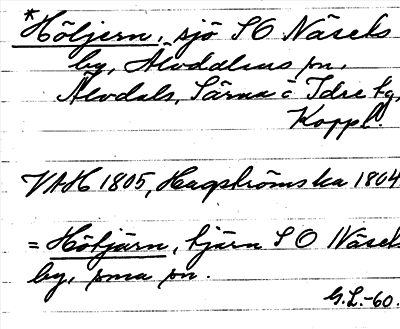 *Höljern, sjö SO Näsets
by, Älvdalens sn.
Älvdals, Särna o Idre tg,
Koppl.
VAH 1805, Hagströmska 1804
= Hötjärn, tjärn SO Näsets
by, sma sn.
G.L.-60.